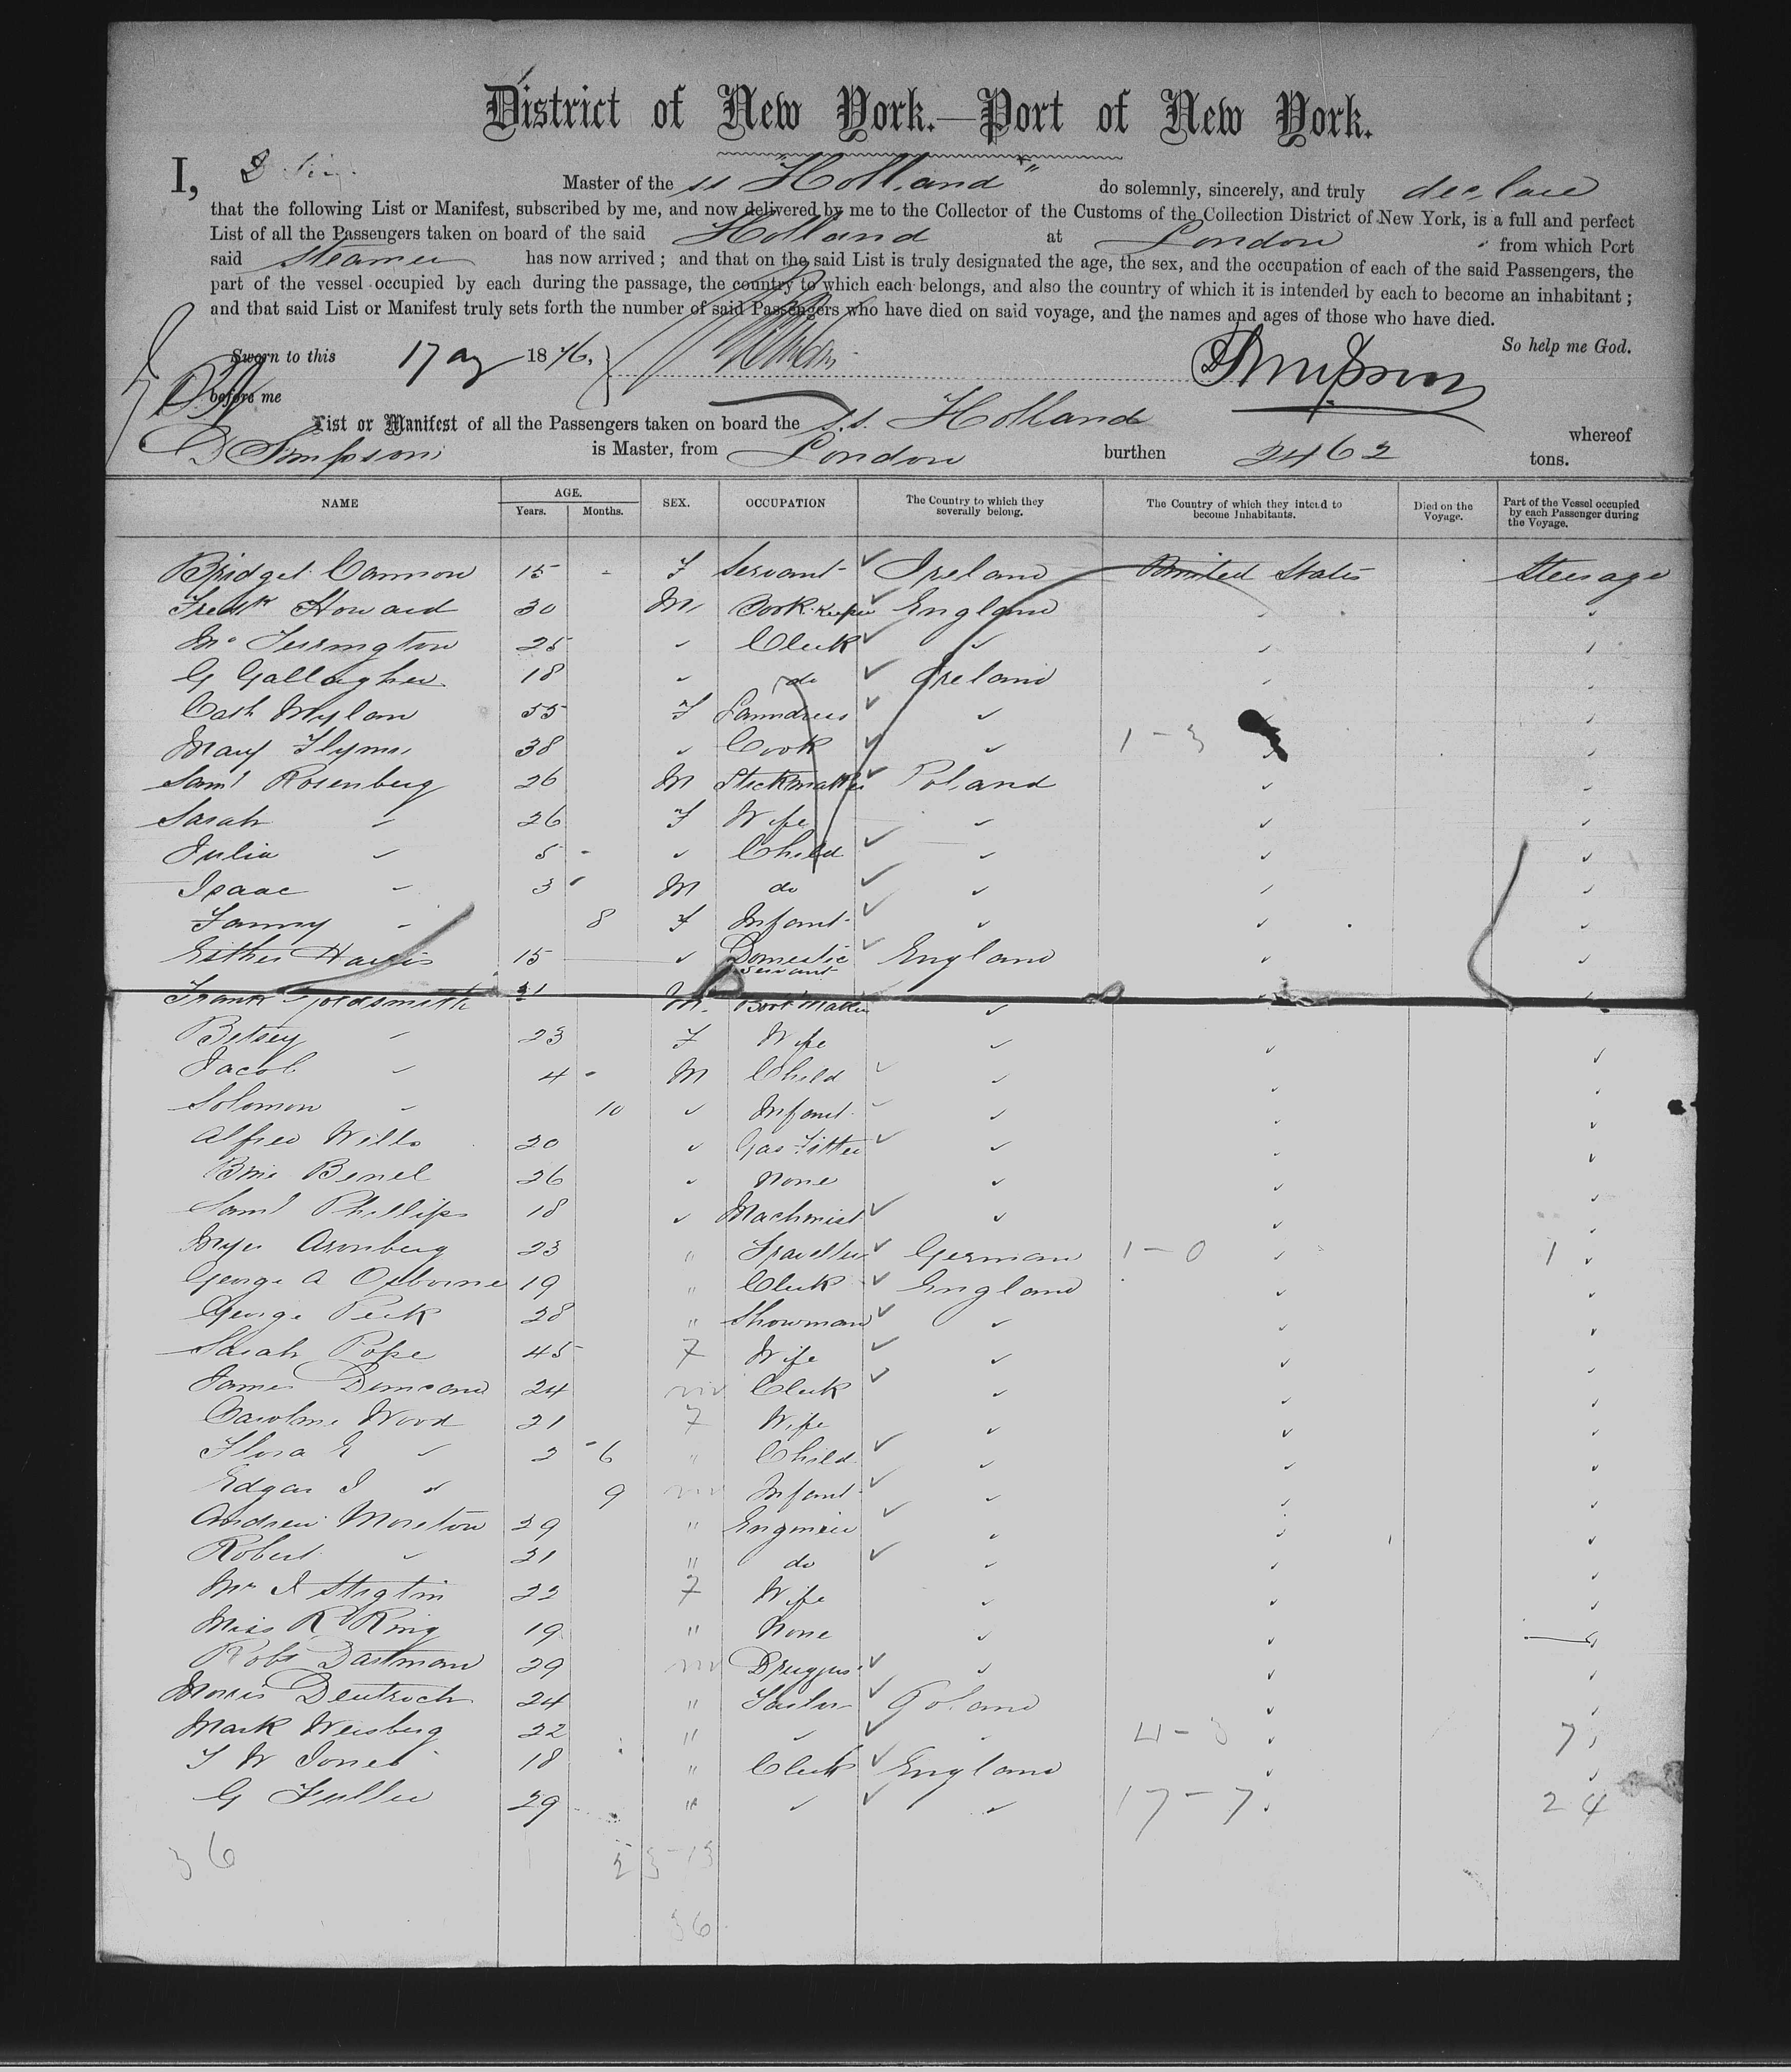 District of New York.—Port of New York.
I, D Sim Master of the ss "Holland" do solemnly, sincerely, and truly declare
that the following List or Manifest, subscribed by me, and now delivered by me to the Collector of the Customs of the Collection District of New York, is a full and perfect
List of all the Passengers taken on board of the said Holland at London from which Port
said steamer has now arrived; and that on the said List is truly designated the age, the sex, and the occupation of each of the said Passengers, the
part of the vessel occupied by each during the passage, the country to which each belongs, and also the country of which it is intended by each to become an inhabitant;
and that said List or Manifest truly sets forth the number of said Passengers who have died on said voyage, and the names and ages of those who have died.
So help me God.
Sworn to this 17 Aug 1876, DSimpson
before me
List or Manifest of all the Passengers taken on board the s.s. Holland whereof
D Simpson is Master, from London burthen 2462 tons.
NAME AGE. SEX. OCCUPATION The Country to which they severally belong. The Country of which they intend to become Inhabitants. Died on the Voyage. Part of the Vessel occupied by each Passenger during the Voyage.
Years. Months.
Bridget Cannon 15 - F Servant ✓ Ireland United States Steerage
Fredk Howard 30 M Book-keeper ✓ England
25 " Clerk ✓ "
G Gallagher 18 " do ✓ Ireland
Cath Mylan 55 F Laundress ✓ "
Mary Flynn 38 " Cook ✓ " 1-3
Saml Rosenberg 26 M Stickmaker ✓ Poland
Sarah " 26 F Wife "
Julia " 5 - " Child ✓ "
Isaac " 3 - M do ✓ "
Fanny " 8 F Infant ✓ "
Esther Harris 15 " Domestic Servant ✓ England
Frank Goldsmith 31 M. Boot Maker "
Betsey " 23 F Wife "
Jacob " 4 - M Child ✓ "
Solomon " 10 " Infant ✓ "
Alfred Wells 20 " Gas Fitter ✓ "
26 " None "
Saml Phillips 18 " Machinist ✓ "
Myer Aronberg 23 " Traveller ✓ German 1-0 1
George A Osborne 19 " Clerk ✓ England
George Peck 28 " Showman ✓ "
Sarah Pope 45 F Wife ✓ "
James Duncan 24 m Clerk ✓ "
Caroline Wood 21 F Wife "
Flora E " 2 - 6 " Child ✓ "
Edgar J " 9 m Infant ✓ "
Andrew Moreton 29 " Engineer ✓ "
Robert " 31 " do ✓ "
22 F Wife "
Miss R King 19 " None "
Robt Dastman 29 m Druggist ✓ "
Morris Deutsch 24 " Tailor ✓ Poland
Mark Weisberg 22 " " ✓ " 4-3 7
T W Jones 18 " Clerk ✓ England
G Fuller 29 " " ✓ " 17-7 24
36 23-13
36